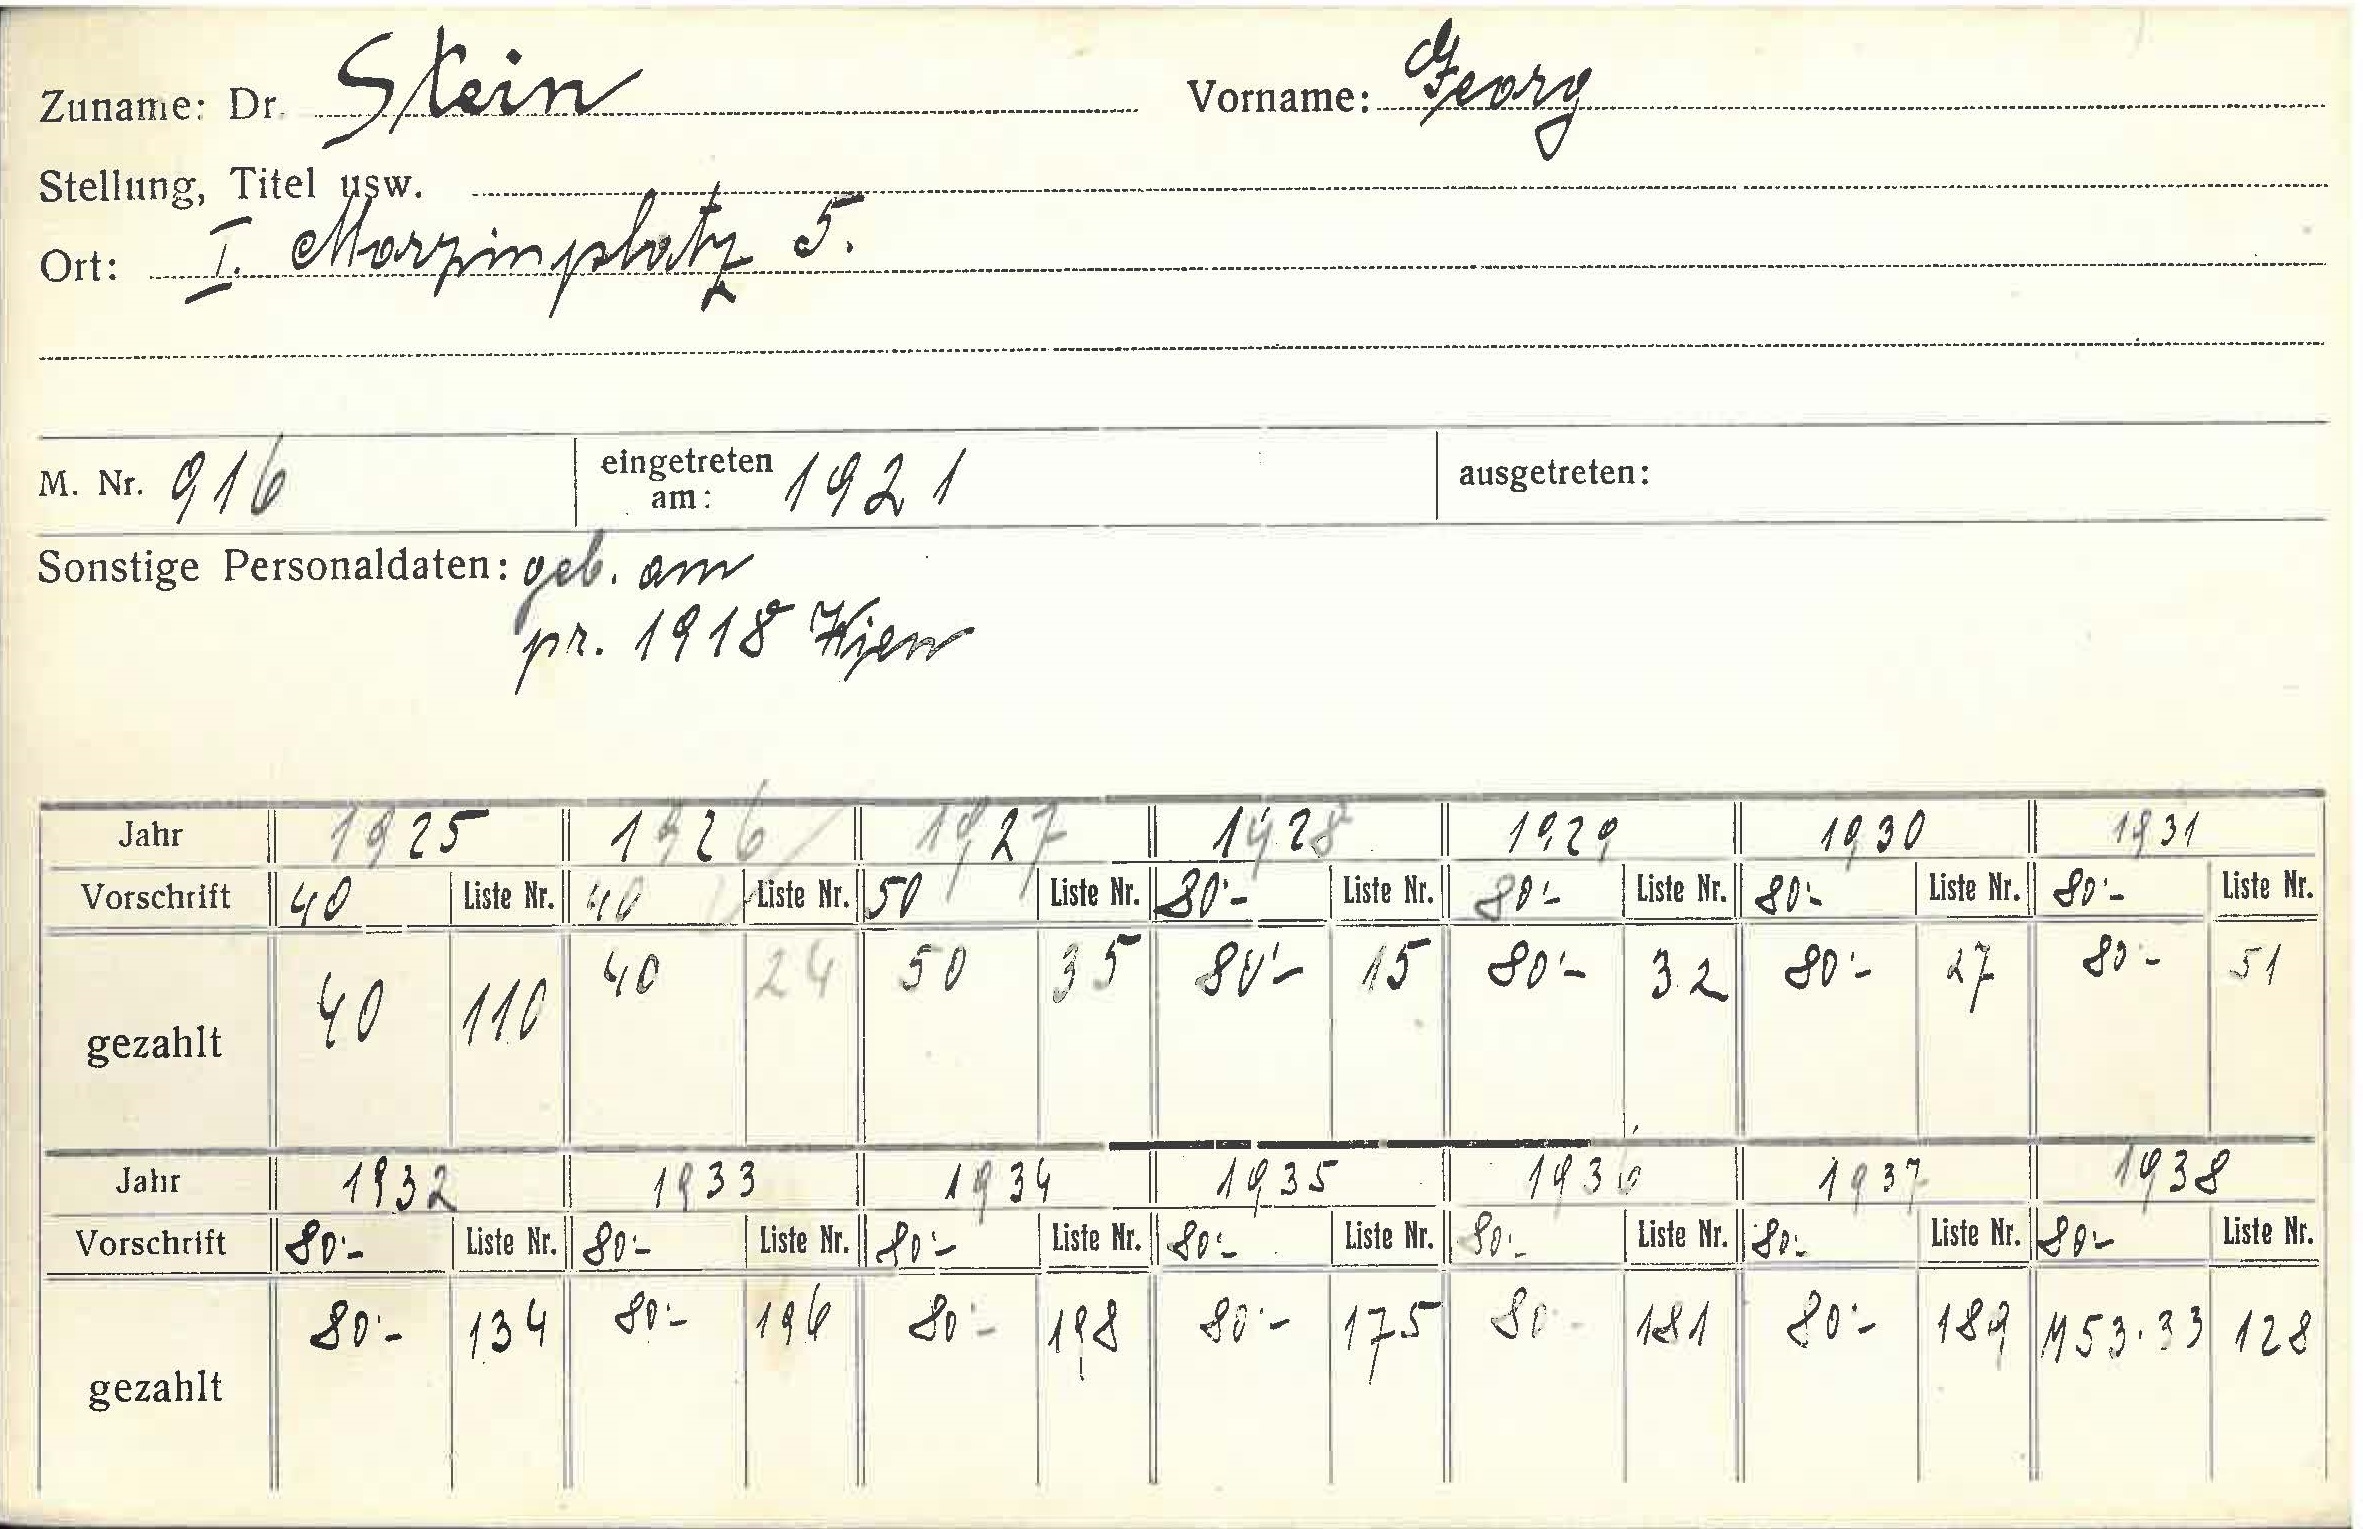 Zuname: Dr. Stein Vorname: Georg
Stellung, Titel usw.
Ort: I. Morzinplatz 5.
M. Nr. 916 eingetreten am: 1921 ausgetreten:
Sonstige Personaldaten: geb. am
pr. 1918 Wien
Jahr 1925 1926 1927 1928 1929 1930 1931
Vorschrift 40 Liste Nr. 40 Liste Nr. 50 Liste Nr. 80.- Liste Nr. 80.- Liste Nr. 80.- Liste Nr. 80.- Liste Nr.
gezahlt 40 110 40 24 50 35 80.- 15 80.- 32 80.- 27 80.- 51
Jahr 1932 1933 1934 1935 1936 1937 1938
Vorschrift 80.- Liste Nr. 80.- Liste Nr. 80.- Liste Nr. 80.- Liste Nr. 80.- Liste Nr. 80.- Liste Nr. 80.- Liste Nr.
gezahlt 80.- 134 80.- 196 80.- 198 80.- 175 80.- 181 80.- 189 M 53.33 128